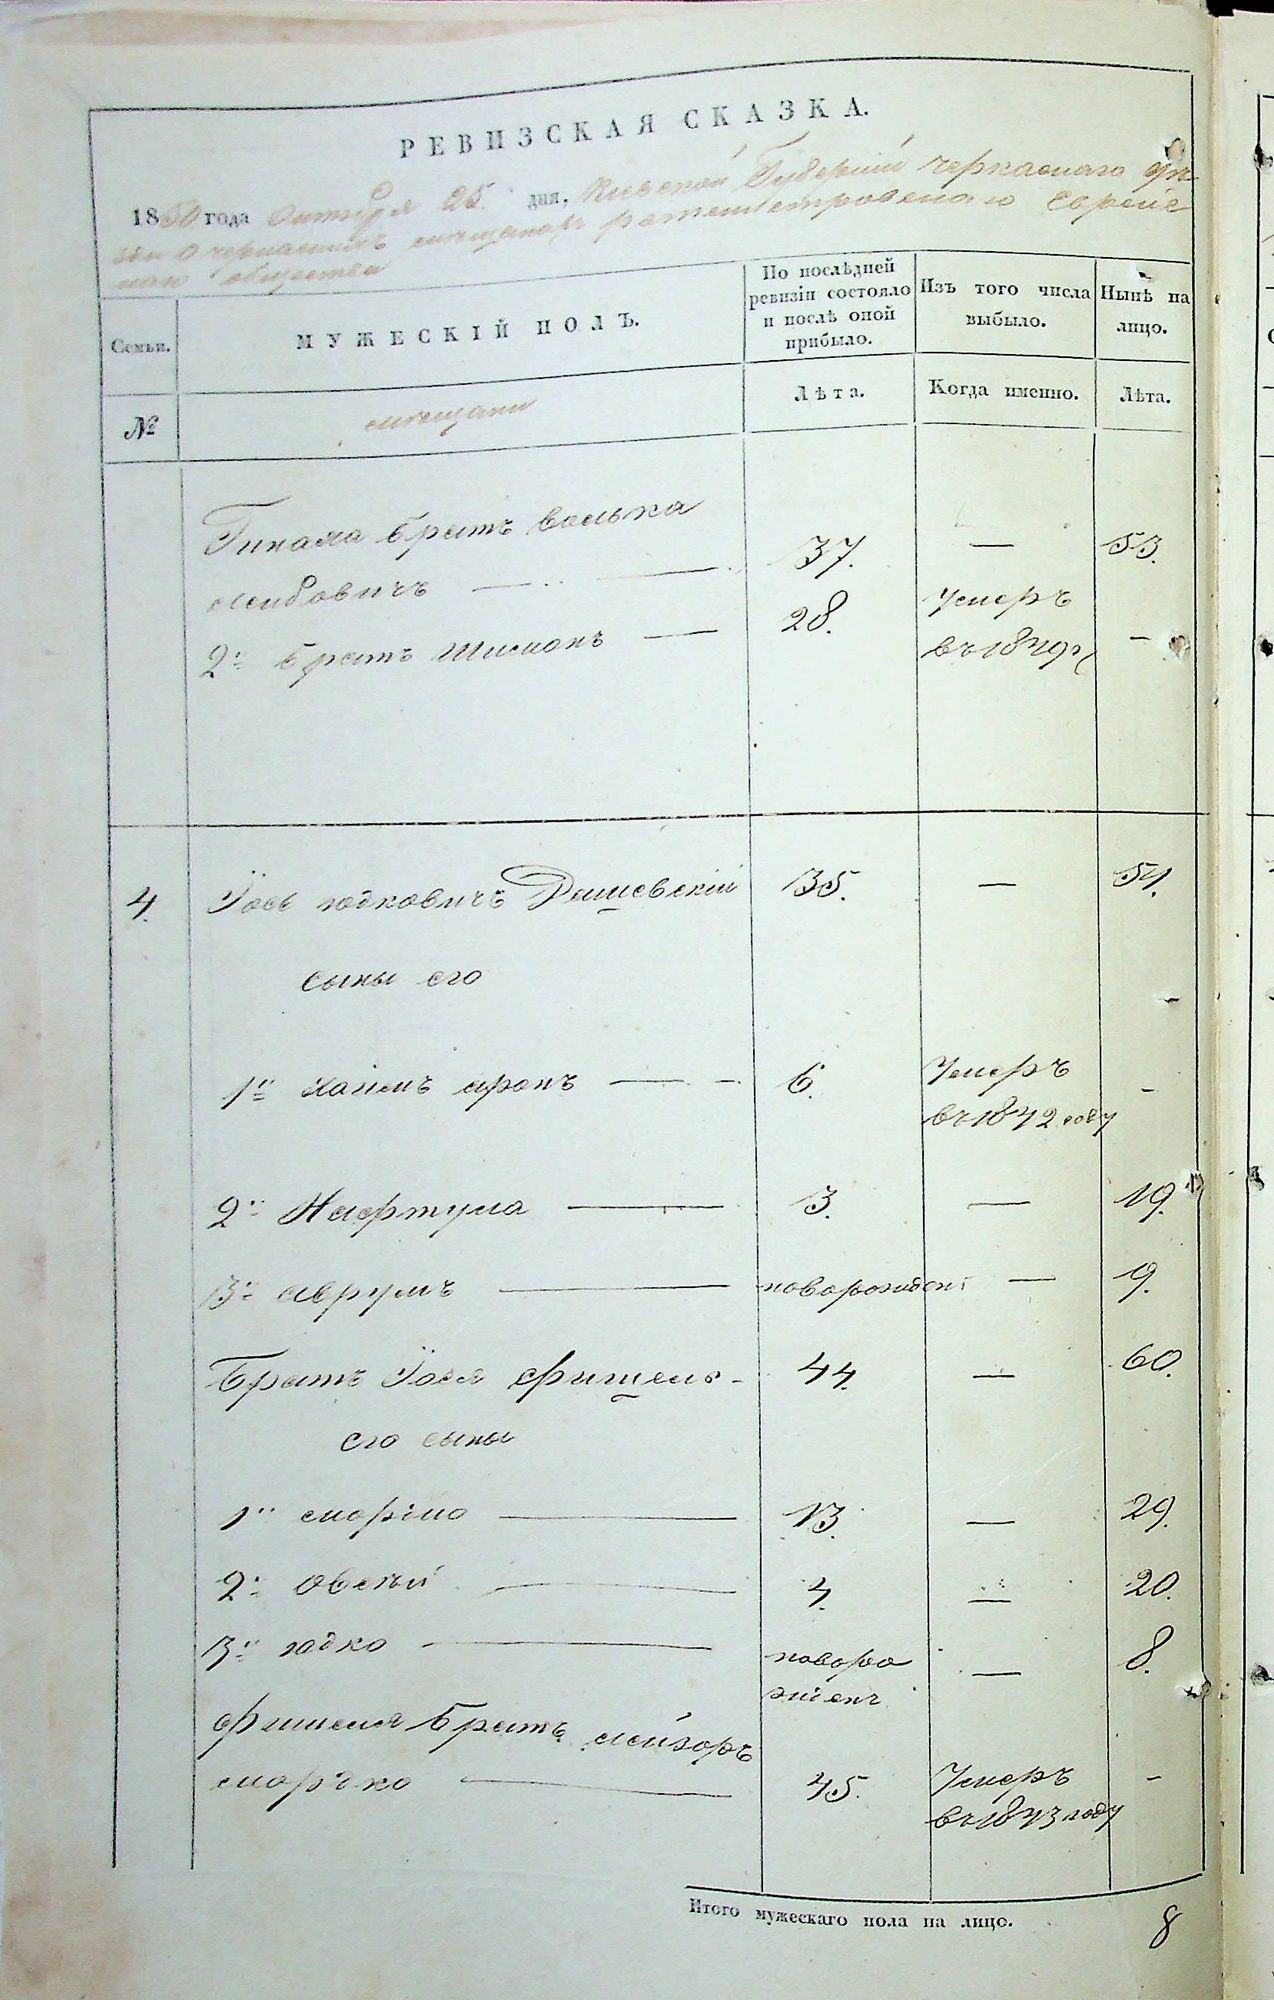 РЕВИЗСКАЯ СКАЗКА.
1850 года Октября 25 дня, Киевской Губерніи черкаскаго
о черкаскихъ мещанахъ Еврейс
каго общества
Семьи.
МУЖЕСКІЙ ПОЛЪ.
По послѣдней ревизіи состояло и послѣ оной прибыло.
Изъ того числа выбыло.
Нынѣ на лицо.
№
мещани
Лѣта.
Когда именно.
Лѣта.
братъ волька
лейбовичъ — 37. — 53.
2й братъ шимонъ — 28. Умеръ въ 1849г —
4. Іось юдковичъ Дашевскій 35. — 51.
сыны его
1й хаимъ аронъ — 6. Умеръ въ 1842 году —
2й Нафтула — 3. — 19.
3й аврумъ — новорожден — 9.
Братъ Іося фишель - 44. — 60.
его сыны
1й мортко — 13. — 29.
2й овсѣй — 4. — 20.
3й юдко — новоро жденъ — 8.
фишеля братъ лейзоръ
мордко — 45. Умеръ въ 1843 году —
Итого мужескаго пола на лицо. 8